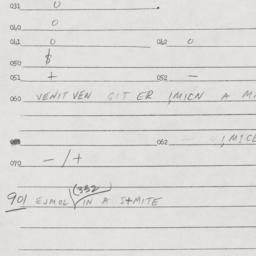 031 0
040 0
041 0 042 0
050 $
051 + 052 -
060 VENIT VEN GIT ER , MICN A M
062 , MICE
070 - / +
(332)
901 ESMOL IN A S+MITE